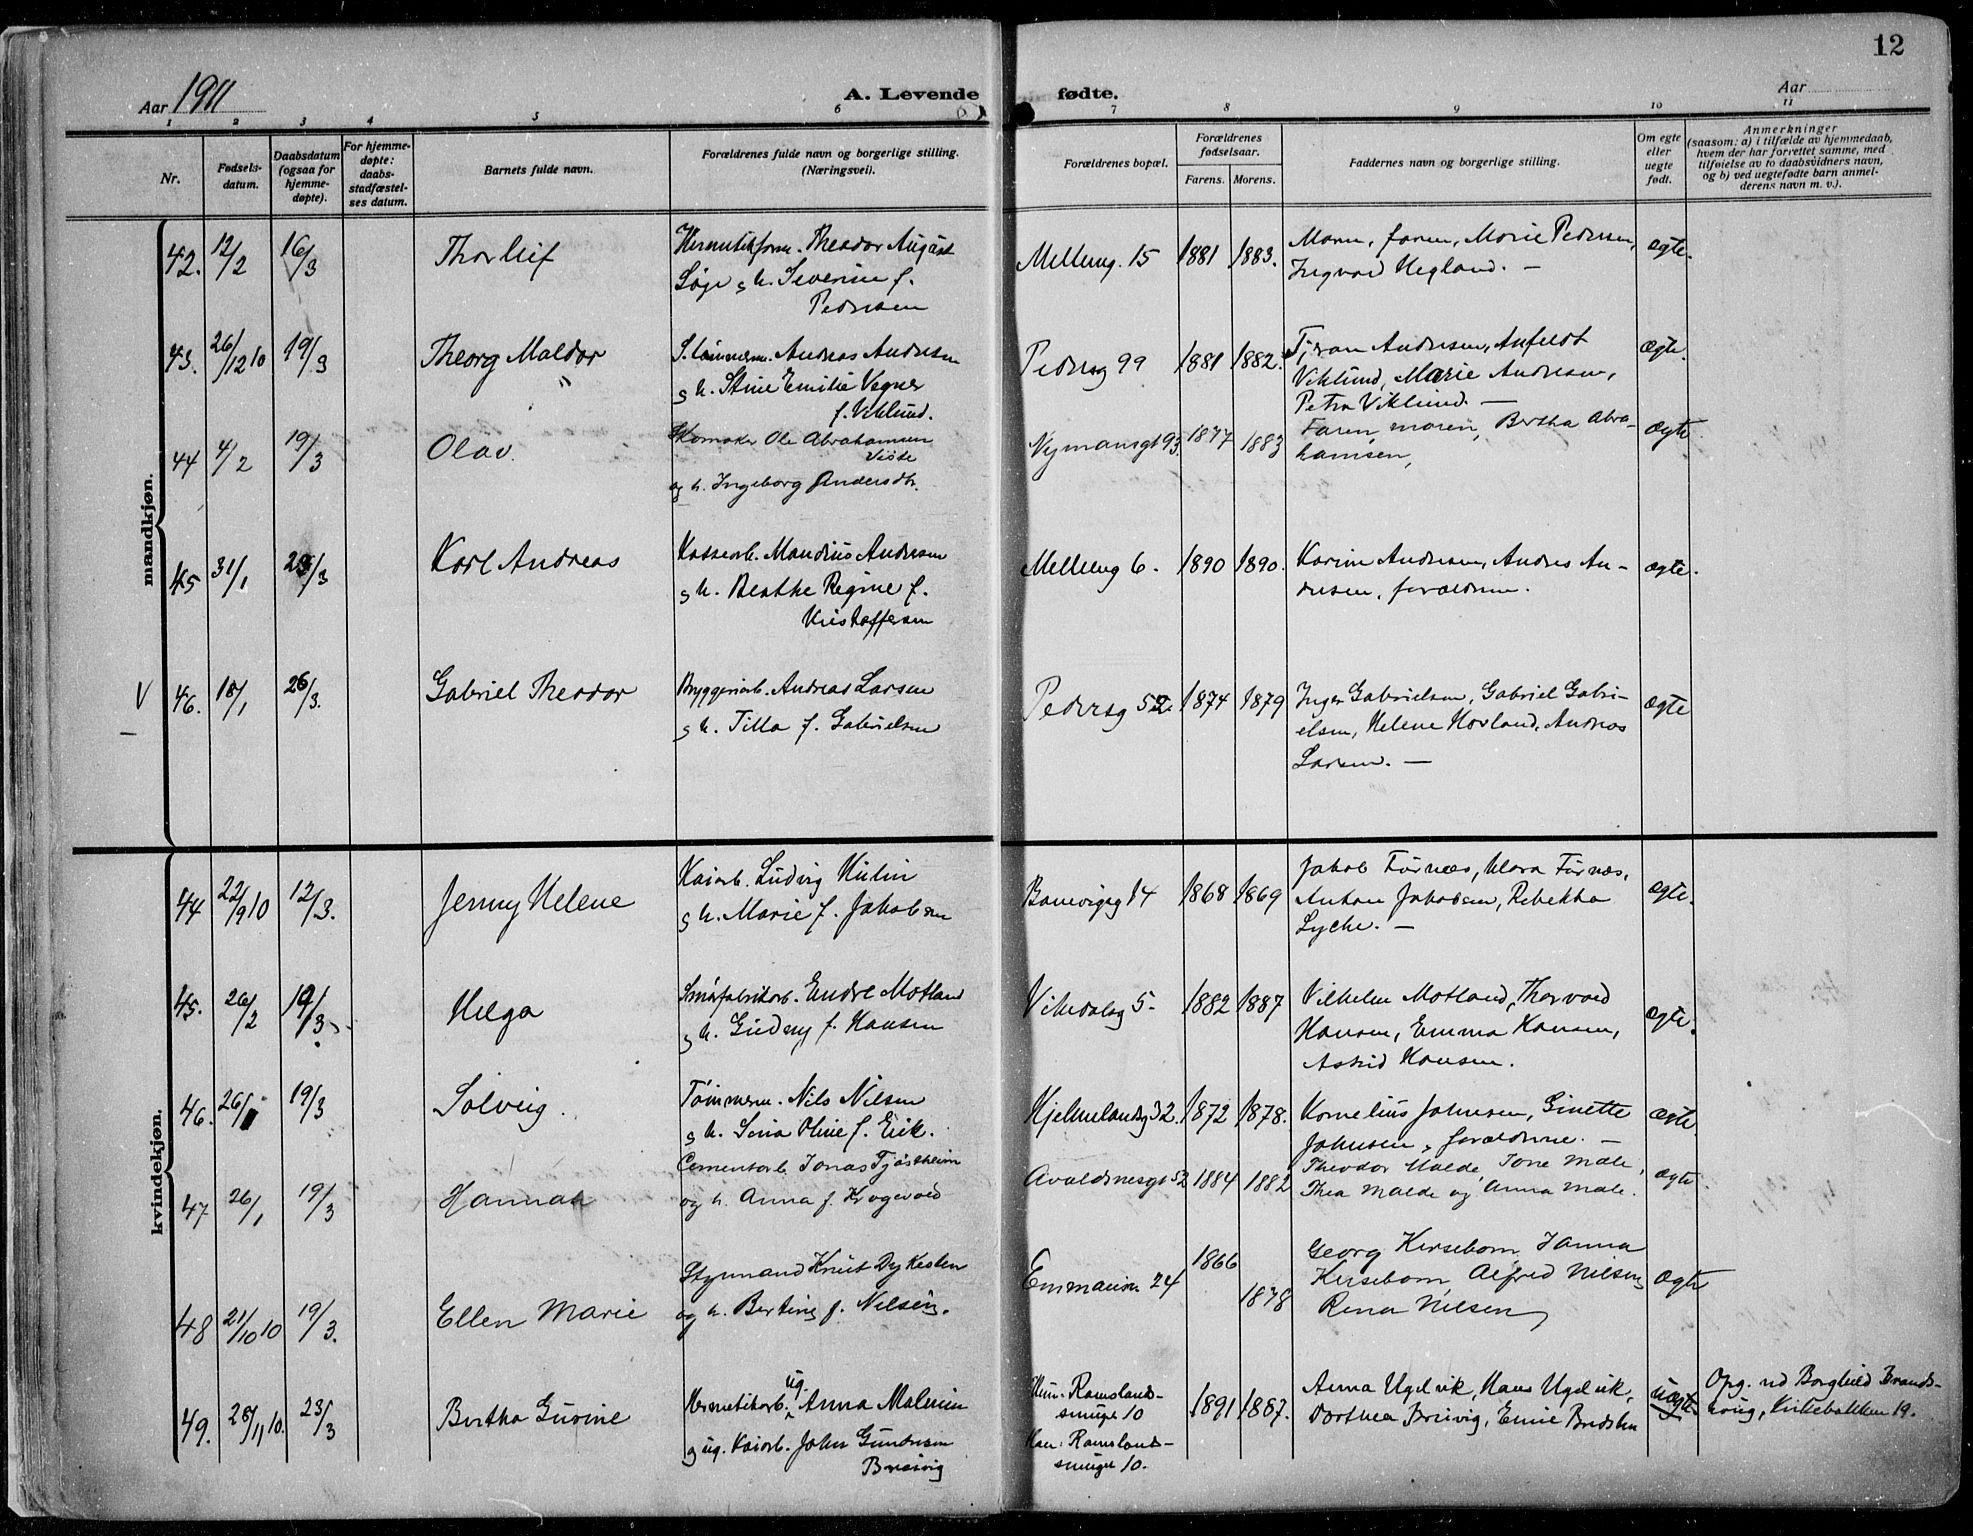 12
Aar 1911
A. Levende fødte.
Aar
1 2 3 4 5 6 7 8 9 10 11
Nr.
Fødsels-
datum.
Daabsdatum
(ogsaa for
hjemme-
døpte).
For hjemme-
døpte:
daabs-
stadfæstel-
ses datum.
Barnets fulde navn.
Forældrenes fulde navn og borgerlige stilling.
(Næringsvei).
Forældrenes bopæl.
Forældrenes
fødselsaar.
Farens. Morens.
Faddernes navn og borgerlige stilling.
Om egte
eller
uegte
født.
Anmerkninger
(saasom: a) i tilfælde av hjemmedaab,
hvem der har forrettet samme, med
tilføielse av to daabsvidners navn,
og b) ved uegtefødte barn anmel-
derens navn m. v.).
mandkjøn.
42. 12/2 16/3 Thorleif
Theodor August
h. Severine f.
Pedersen
Melleng. 15 1881 1883.
Moren, faren, Marie Pedersen,
Ingvard Hegland. —
ægte.
43. 26/12 10 19/3 Theorg Maldor
Andreas Andresen
h. Stine Emilie Vegner
f. Viklund.
Pedersg 99 1881 1882.
Andresen, Anfeldt
Viklund, Marie Andresen,
Petra Viklund. —
ægte.
44 4/2 19/3 Olav
Skomaker Ole Abrahamsen
og h. Ingeborg Andersdtr.
Nymansgt 93. 1877 1883
Faren, moren, Bertha Abra-
hamsen,
ægte
45 31/1 23/3 Karl Andreas
Kassearb. Mandius Andresen
h. Berthe Regine f.
Kristoffersen
Melleng 6. 1890 1890.
Karine Andresen, Andres An-
dresen, forældrene.
ægte.
V 46. 18/1 26/3. Gabriel Theodor
Bryggeriarb. Andreas Larsen
h. Tilla f. Gabrielsen
Pedersg 52. 1874 1879
Inger Gabrielsen, Gabriel Gabri-
elsen, Helene Hovland, Andreas
Larsen. —
ægte
kvindekjøn.
44 22/9 10 12/3. Jenny Helene
Kaiarb. Ludvig
h. Marie f. Jakobsen
Banevigsg 14 1868 1869
Jakob Furnæs, Klara Furnæs,
Anton Jakobsen, Rebekka
Lyche. —
ægte.
45. 26/2 19/3 Helga
Smørfabrikarb. Endre Motland
h. Gudny f. Hansen
Vikedalsg 5. 1882 1887
Vilhelm Motland, Thorvald
Hansen, Emma Hansen,
Astrid Hansen.
ægte.
46. 26/1 19/3 Solveig.
Tømmerm. Nils Nilsen
h. Sina Oline f. Eik.
Hjelmelandsg 32. 1872 1878.
Kornelius Johnsen, Ginette
Johnsen, forældrene. —
ægte.
47 26/1 19/3 Hannah
Cementarb. Jonas Tjøstheim
og h. Anna f. Krogevold
Avaldsnesgt 52 1884 1882
Theodor Malde, Tone Male,
Thea Malde og Anna Male.
ægte.
48 21/10 10 19/3. Ellen Marie
Styrmand Knut Dykesten
og h. Bertine f. Nilsen.
Emmausv. 24 1866 1878
Georg Kirsebom, Janna
Kirsebom, Alfred Nilsen,
Rena Nilsen
ægte
49. 28/11 10. 23/3 Bertha Gurine
Hermetikarb. ug. Anna Malmin
ug. Kaiarb. John Gundersen
Breivig
Hun: Ramslands-
smuget 10
Han: Ramslands-
smuget 10.
1891 1887.
Anna Ugelvik, Hans Ugelvik,
Dorthea Breivig, Emil
uægte.
Opg. ved Borghild Brands-
Kirkebakken 19.